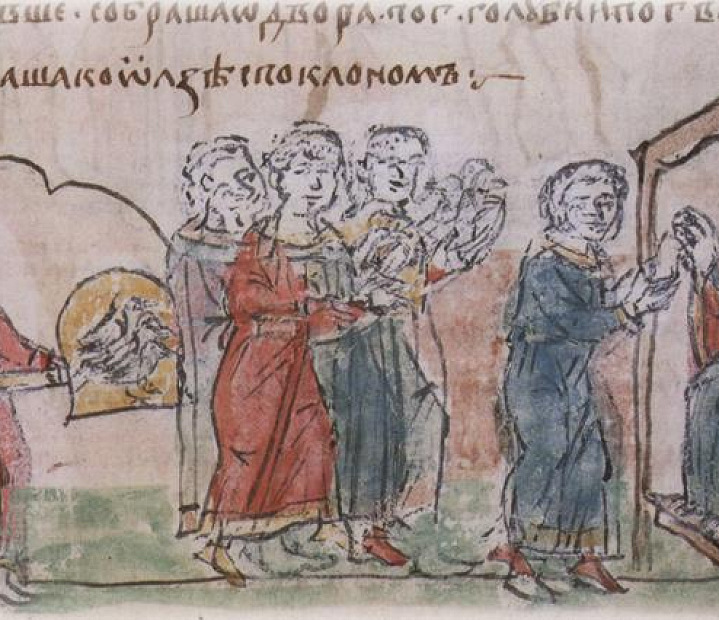 ъше · собраша ѿ двора · по г · голꙋби и по г в
аша ко ѡлзѣ с поклономъ :